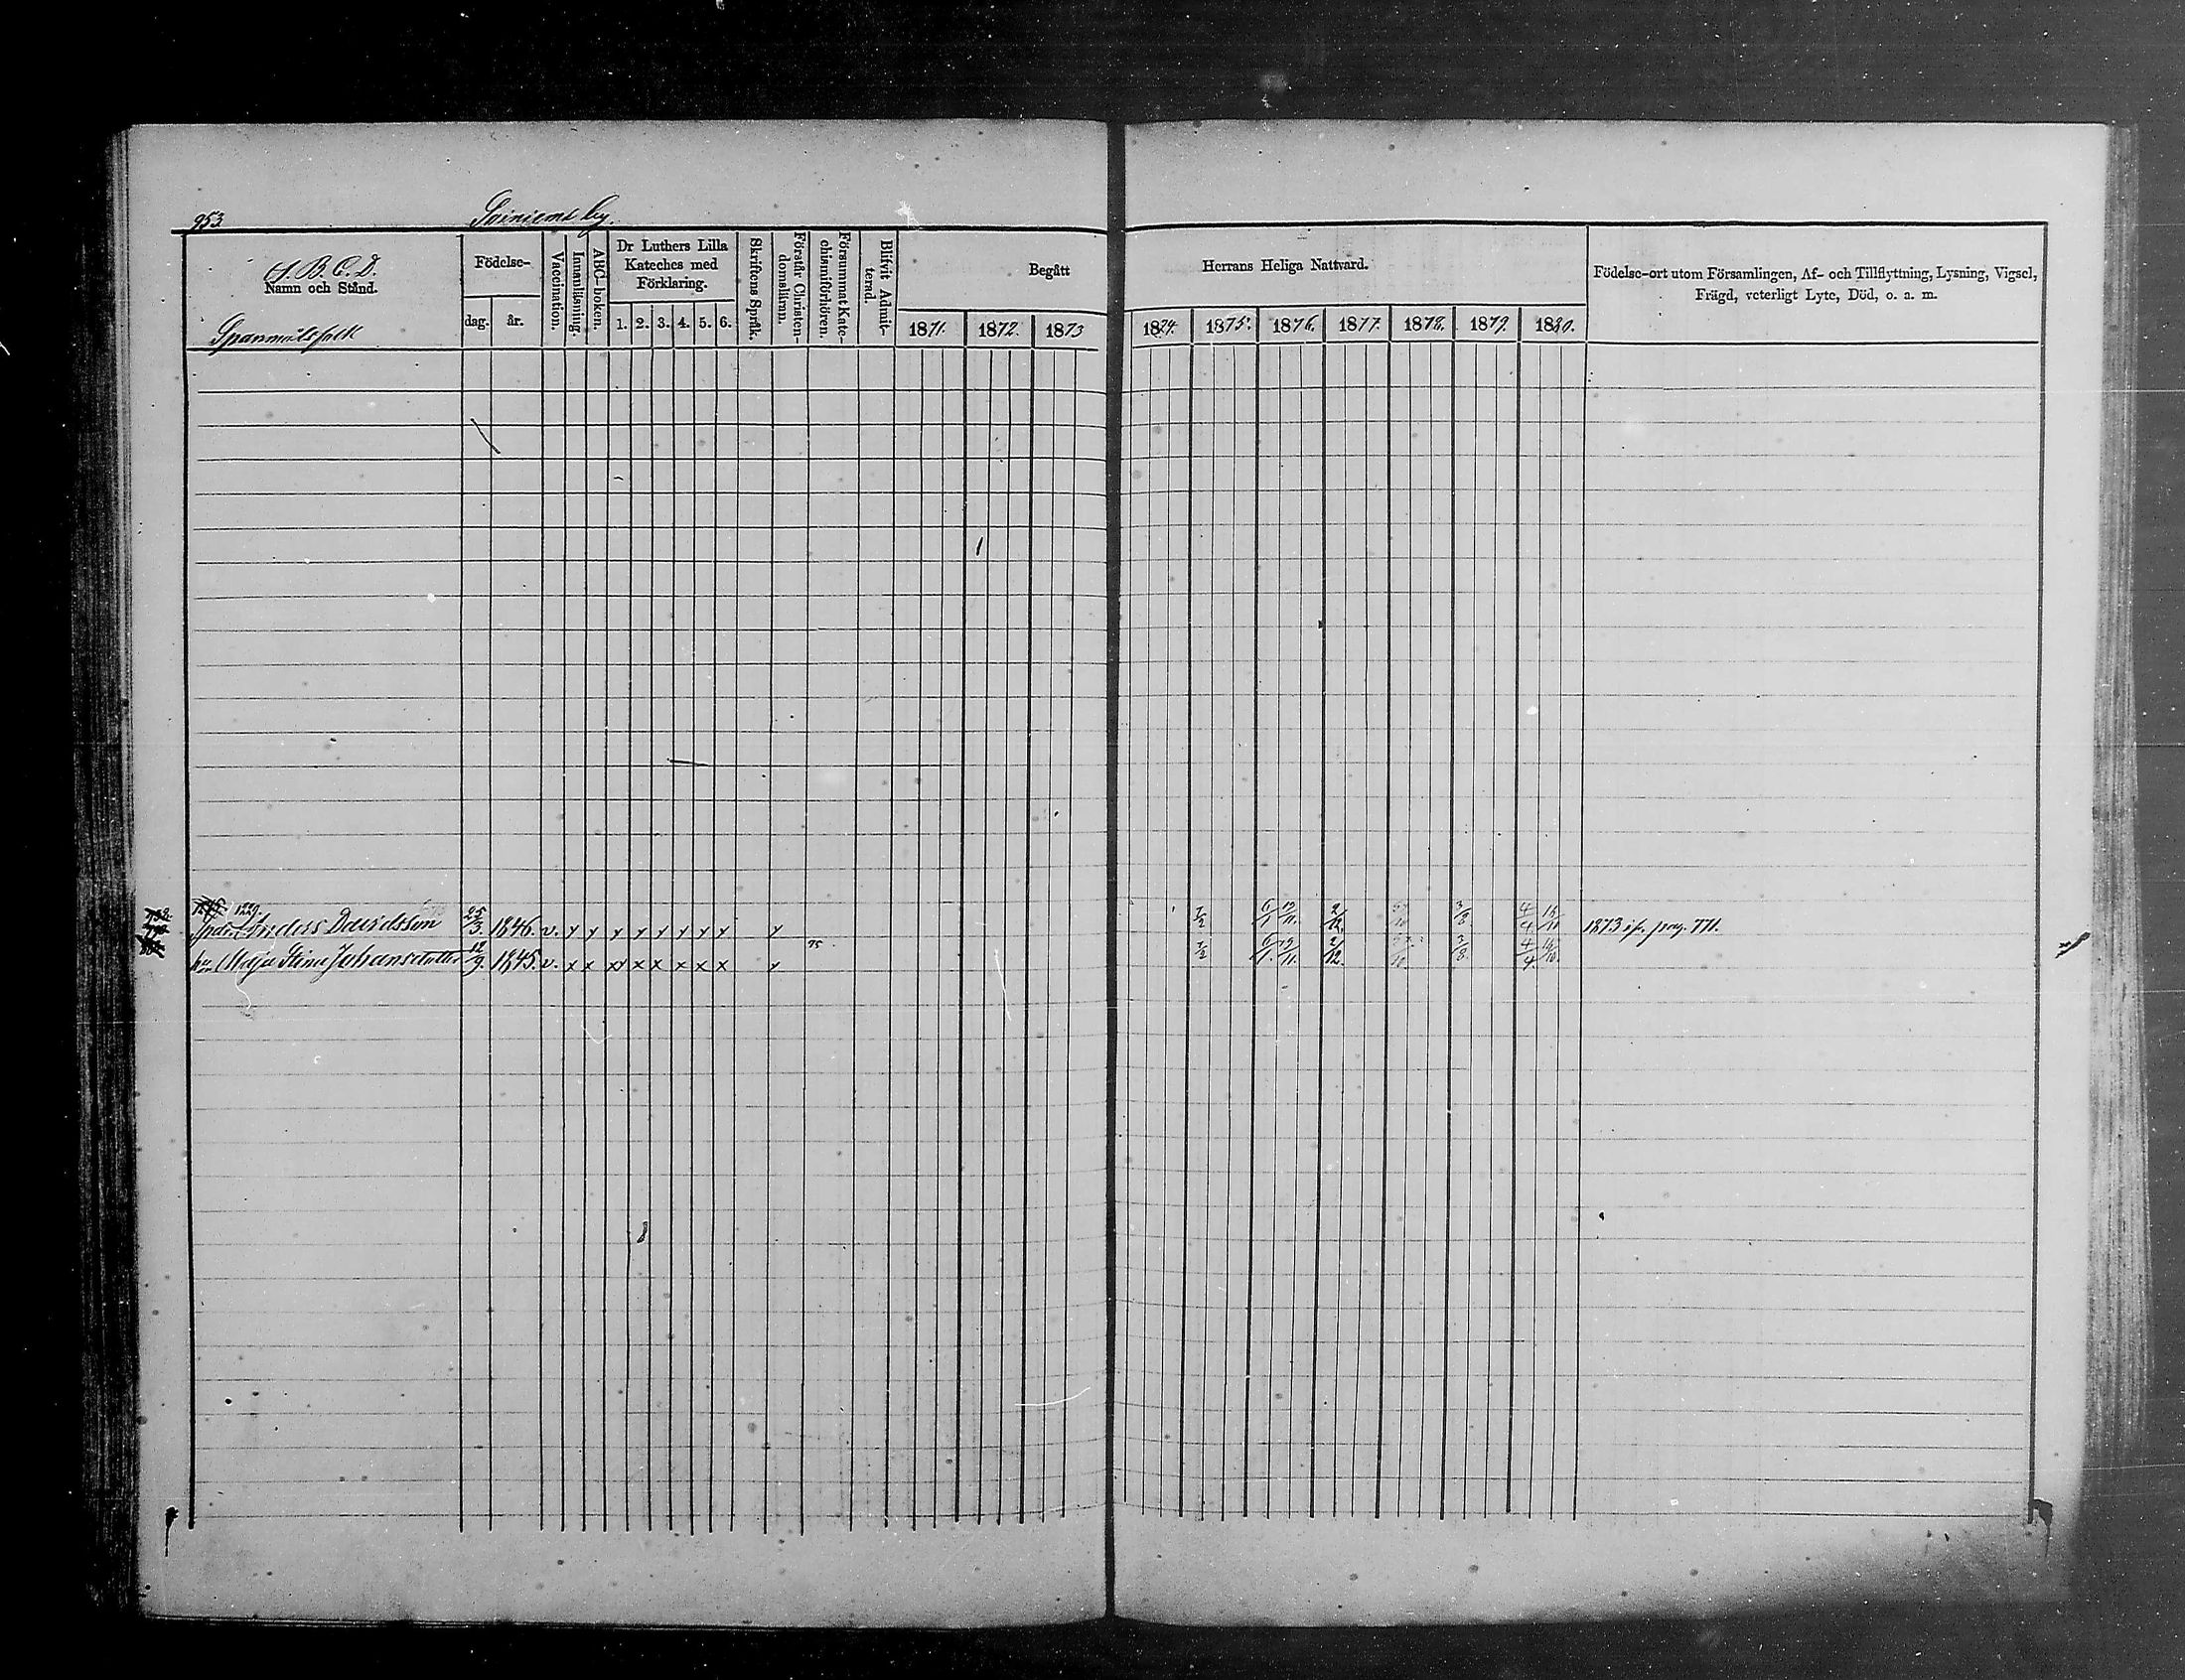 953. Soiniems by.
A. B. C. D.
Namn och Stånd.
Spanmålsfolk
Födelse-
dag. år.
Vaccination.
Innanläsning.
ABC-boken.
Dr Luthers Lilla
Kateches med
Förklaring.
1. 2. 3. 4. 5. 6.
Skriftens Språk.
Förstår Christen-
domslänn.
Försummat Kate-
chismiförhören.
Blifvit Admit-
terad.
Begått
1871. 1872. 1873
Herrans Heliga Nattvard.
1874. 1875. 1876. 1877. 1878. 1879. 1880.
Födelse-ort utom Församlingen, Af- och Tillflyttning, Lysning, Vigsel,
Frägd, veterligt Lyte, Död, o. a. m.
1229.
Anders Davidsson 25/3. 1846. v. x x x x x x x x x 7/2 6/1 19/11. 2/12. 3/8. 4/4 16/10 1873 ifr. pag. 771.
75
Maja Stina Johansdotter 12/9. 1845. v. x x x x x x x x x 7/2 6/1. 19/11. 2/12. 3/8. 4/4. 16/10.